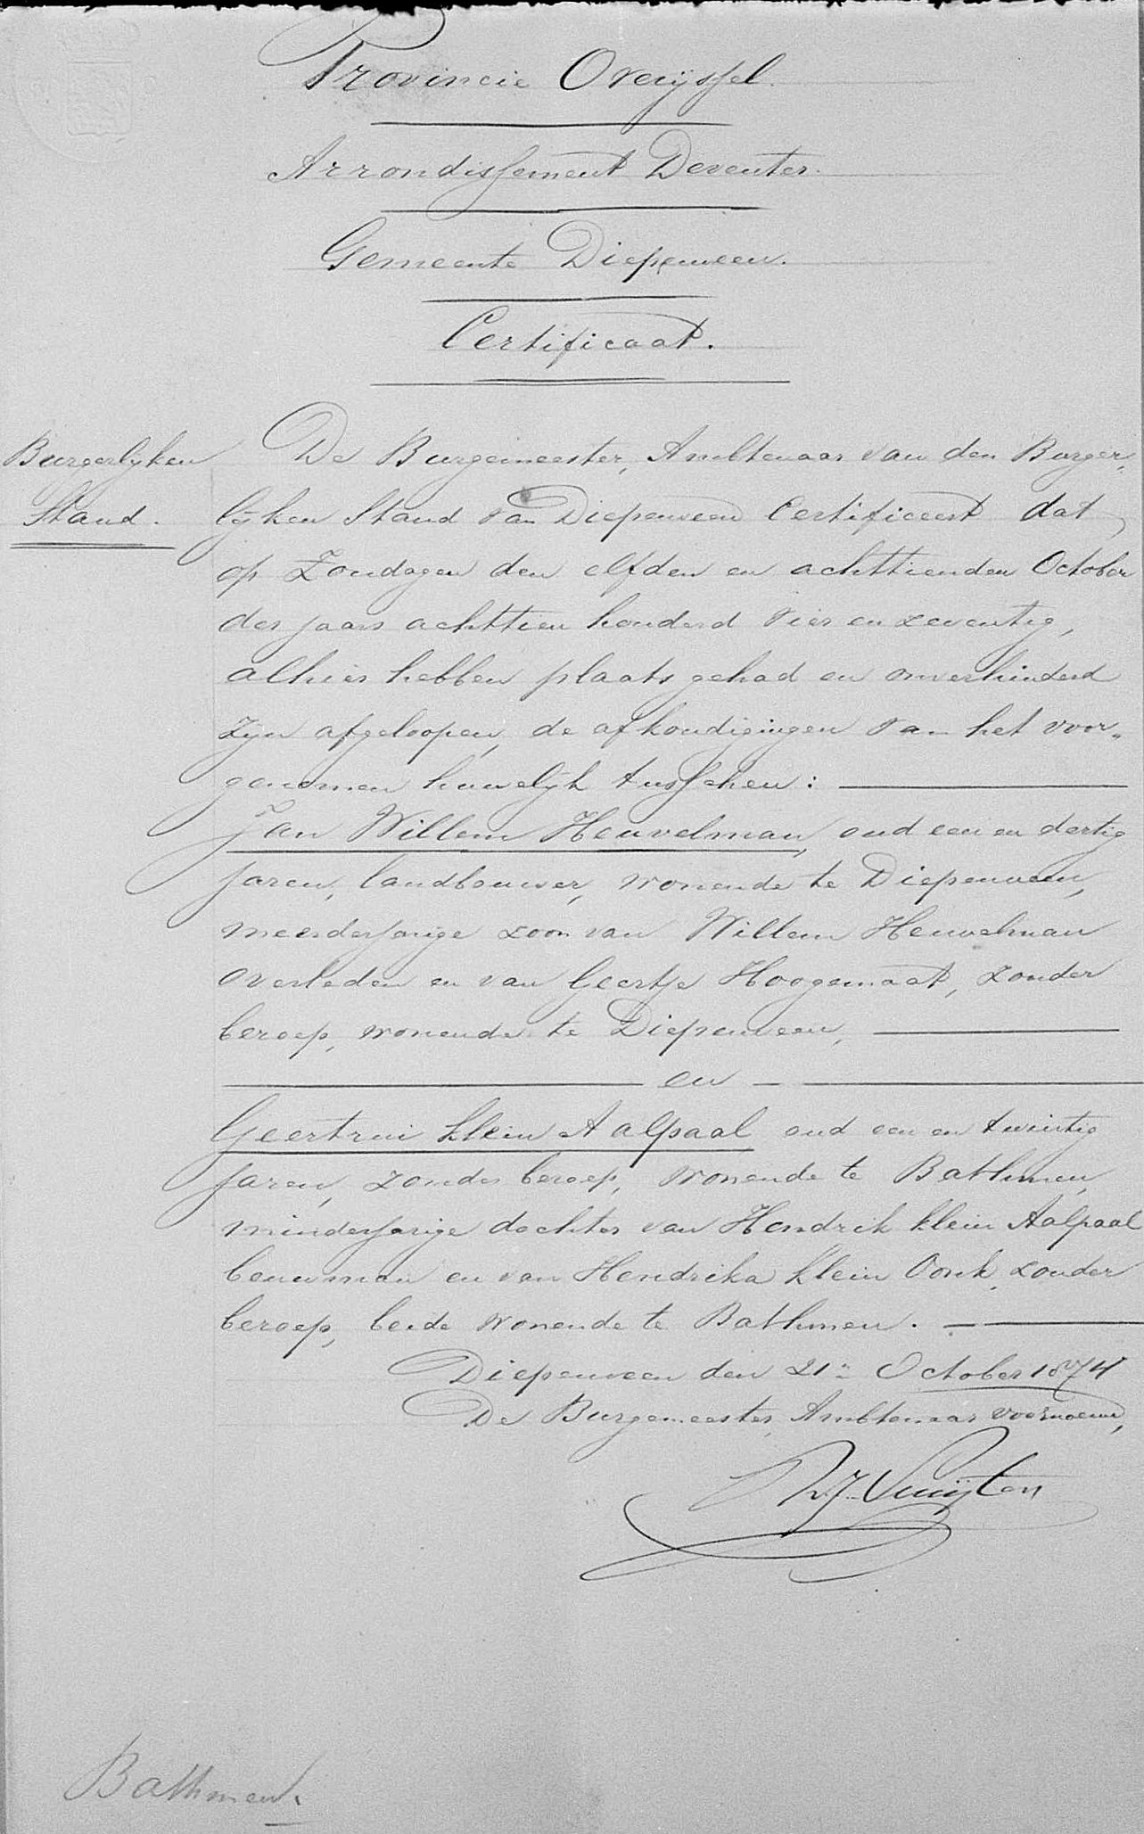 Provincie Overijssel.
Arrondissement Deventer.
Gemeente Diepenveen.
Certificaat.
Burgerlyken
Stand.
De Burgemeester, Ambtenaar van den Burger-
lijken Stand van Diepenveen Certificeert dat,
op Zondagen den elfden en achttienden October
des jaars achttien honderd vier en zeventig,
alhier hebben plaats gehad en onverhinderd
zijn afgeloopen, de afkondigingen van het voor-
genomen huwelijk tusschen:
Jan Willem Heuvelman, oud een en dertig
jaren, landbouwer, wonende te Diepenveen,
meerderjarige zoon van Willem Heuvelman
overleden en van Geertje Hoogemaat, zonder
beroep, wonende te Diepenveen,
en
Geertrui klein Aalpaal oud een en twintig
jaren, zonder beroep, wonende te Bathmen,
minderjarige dochter van Hendrik klein Aalpaal
bouwman en van Hendrika klein Oonk, zonder
beroep, beide wonende te Bathmen.
Diepenveen den 21n October 1874
De Burgemeester, Ambtenaar voornoemd,
Bathmen.